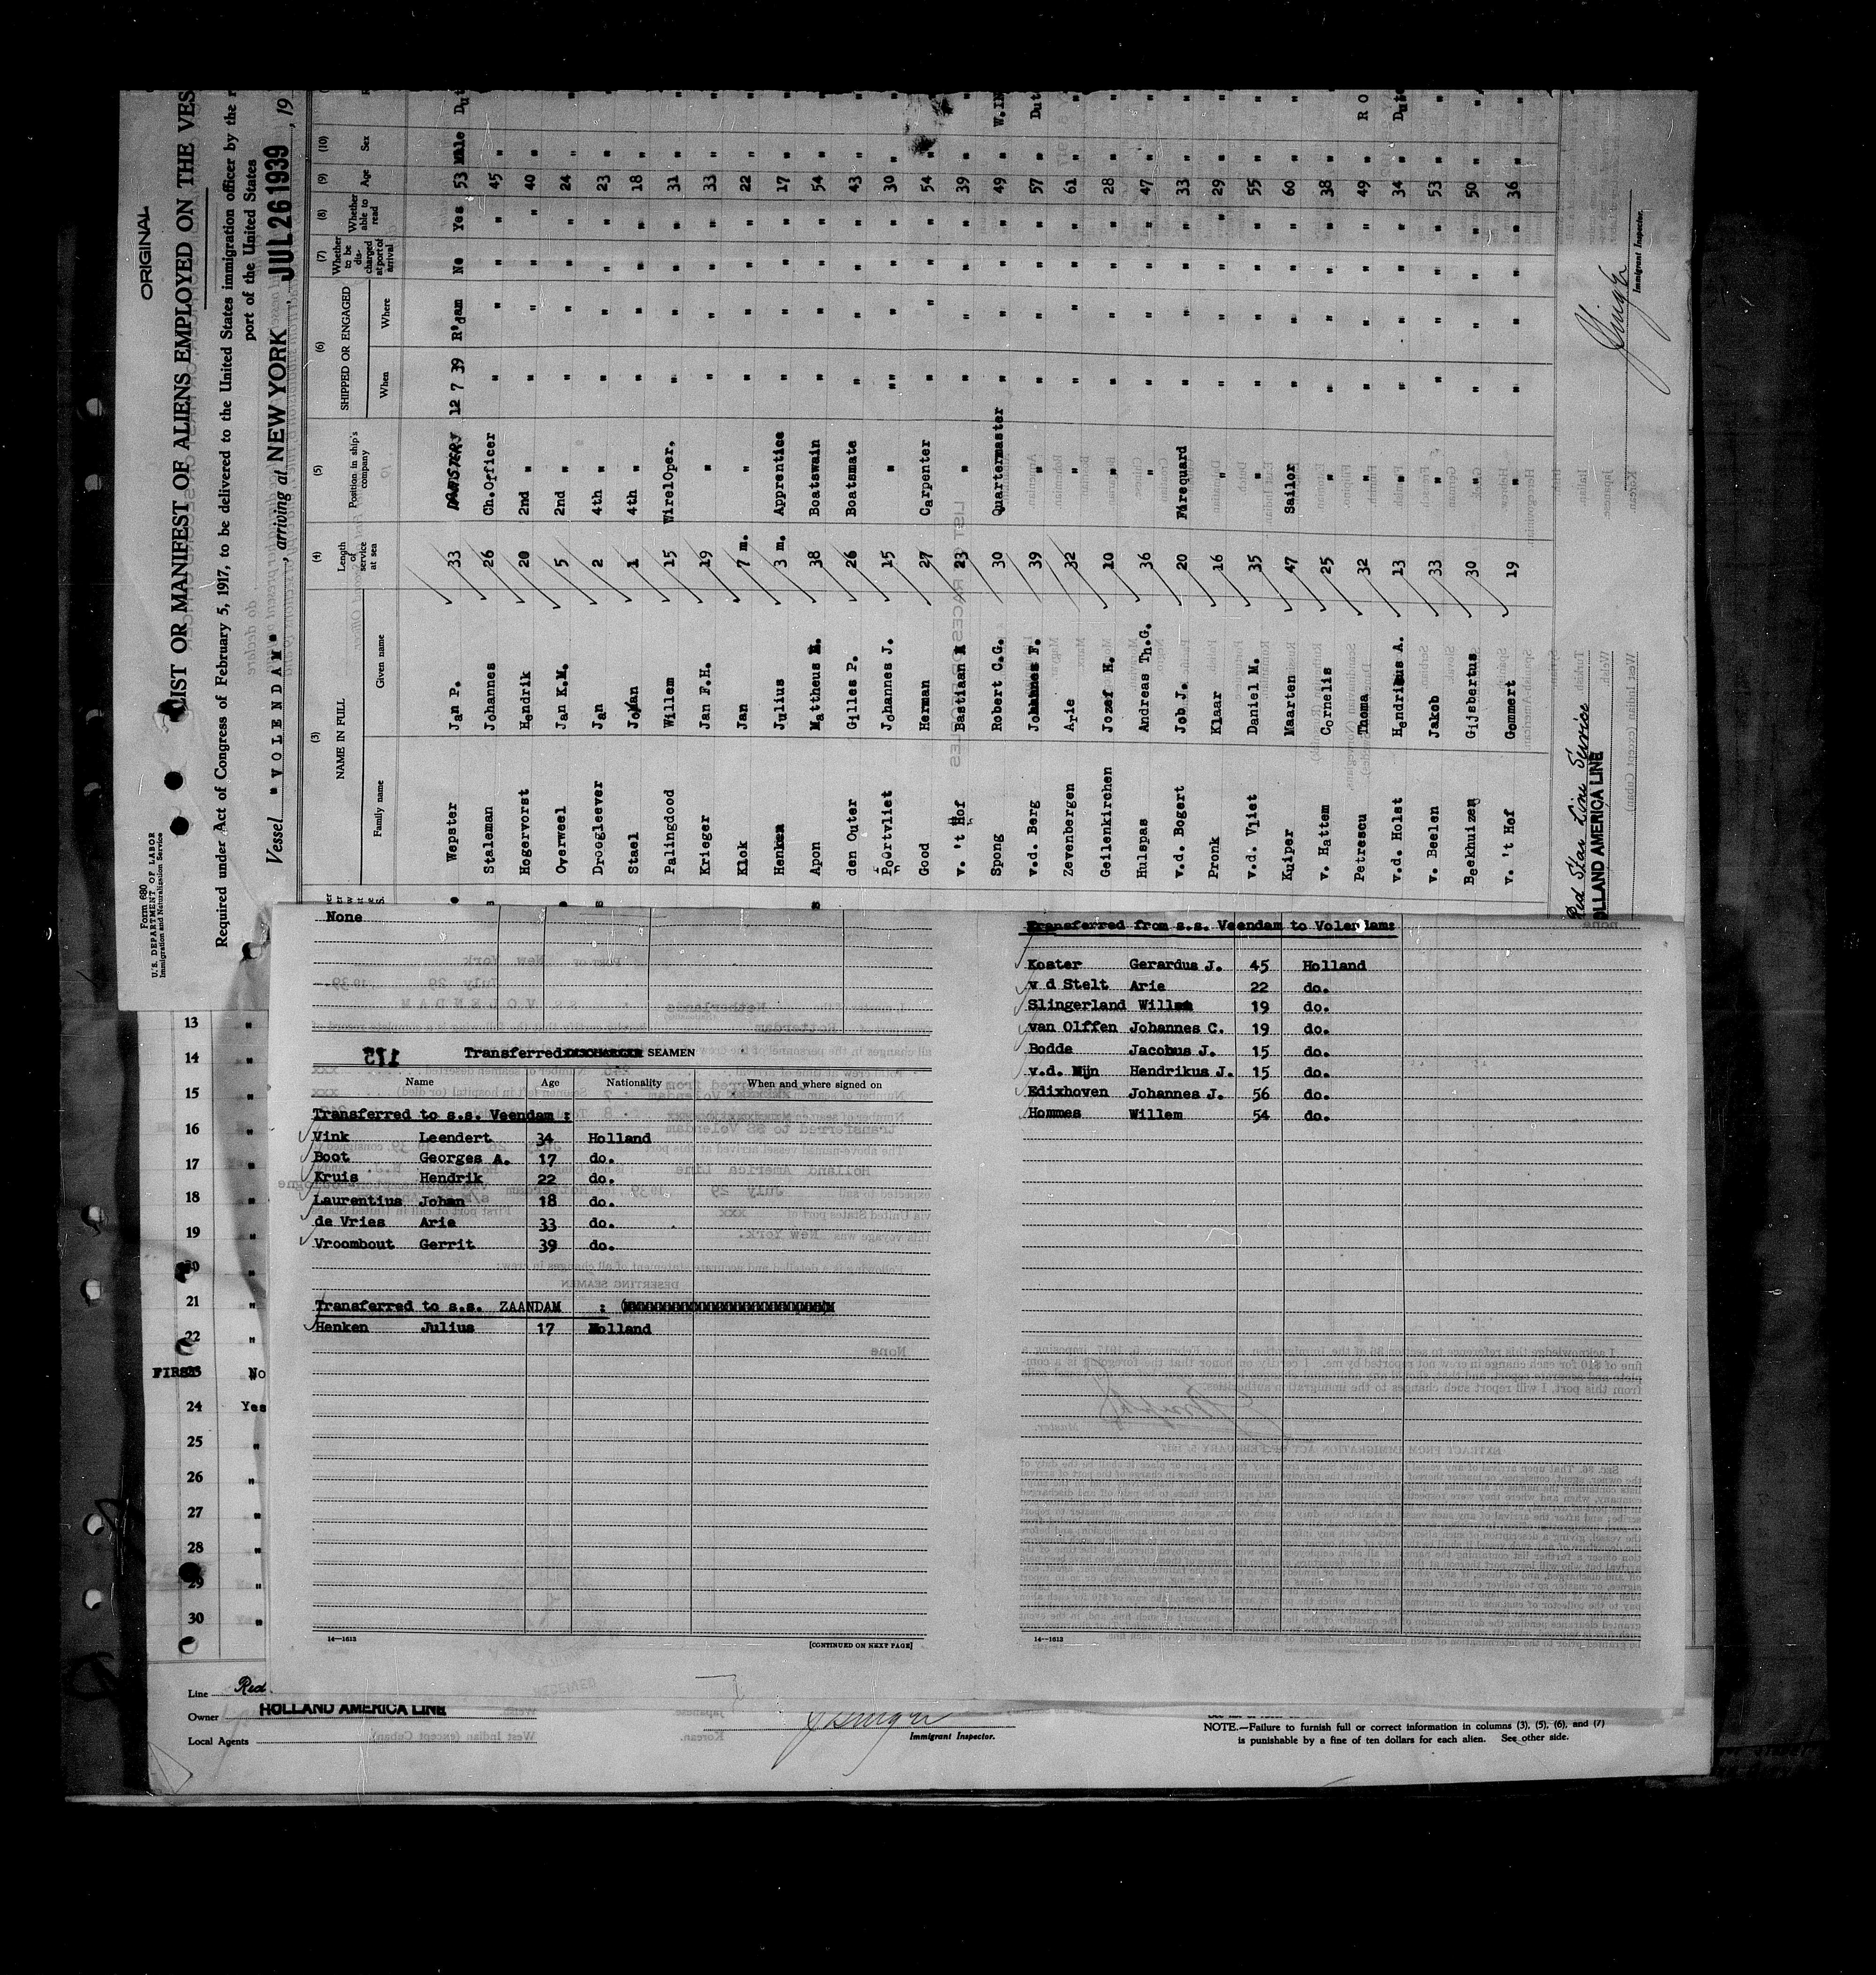 ORIGINAL
Form 680
U.S. DEPARTMENT OF LABOR
Immigration and Naturalization Service
LIST OR MANIFEST OF ALIENS EMPLOYED ON THE VES
Required under Act of Congress of February 5, 1917, to be delivered to the United States immigration officer by the r
port of the United States
Vessel "VOLENDAM", arriving at NEW YORK, JUL 26 1939, 19
(3) (4) (5) (6) (7) (8) (9) (10)
NAME IN FULL Length of service at sea Position in ship's company SHIPPED OR ENGAGED Whether to be dis-charged at port of arrival Whether able to read Age Sex
Family name Given name When Where
Wepster Jan P. 33 12 7 39 R'dam No Yes 53 Male Dut
Staleman Johannes 26 Ch.Officer " " " " 45 "
Hogervorst Hendrik 20 2nd " " " " " 40 "
Overweel Jan K.M. 5 2nd " " " " " 24 " "
Droogleever Jan 2 4th " " " " " 23 " "
Stael Johan 1 4th " " " " " 18 " "
Palingdood Willem 15 WirelOper. " " " " 31 " "
Krieger Jan F.H. 19 " " " " " 33 " "
Klok Jan 7 m. " " " " " 22 " "
Henken Julius 3 m. Apprentice " " " " 17 " "
Apon Mattheus M. 38 Boatswain " " " " 54 " "
den Outer Gilles P. 26 Boatsmate " " " " 43 " "
Poortvliet Johannes J. 15 " " " " " 30 " "
Good Herman 27 Carpenter " " " " 54 "
v. 't Hof Bastiaan 23 " " " " " 39 " "
Spong Robert C.G. 30 Quartermaster " " " " 49 " W.IN
v.d. Berg Johannes F. 39 " " " " " 57 " Dut
Zevenbergen Arie 32 " " " " " 61 " "
Geilenkirchen Jozef H. 10 " " " " " 28 " "
Hulspas Andreas Th.G. 36 " " " " " 47 " "
v.d. Bogert Job J. 20 Firequard " " " " 33 " "
Pronk Klaar 16 " " " " " 29 " "
v.d. Vliet Daniel M. 35 " " " " " 55 " "
Kuiper Maarten 47 Sailor " " " " 60 " "
v. Hattem Cornelis 25 " " " " " 38 " "
Petrescu Thoma 32 " " " " " 49 " R O
v.d. Holst Hendrikus A. 13 " " " " " 34 " Dut
v. Beelen Jakob 33 " " " " " 53 " "
Beekhuizen Gijsbertus 30 " " " " " 50 " "
v. 't Hof Gommert 19 " " " " " 36 " "
Red Star Line Service
OLLAND AMERICA LINE
Immigrant Inspector.
None
Transferred SEAMEN
Name Age Nationality When and where signed on
Transferred to s.s. Veendam :
Vink Leendert 34 Holland
Boot Georges A. 17 do.
Kruis Hendrik 22 do.
Laurentius Johan 18 do.
de Vries Arie 33 do.
Vroombout Gerrit 39 do.
Transferred to s.s. ZAANDAM :
Henken Julius 17 Holland
14—1613 [CONTINUED ON NEXT PAGE]
Transferred from s.s. Veendam to Volendam:
Koster Gerardus J. 45 Holland
v d Stelt Arie 22 do.
Slingerland Willem 19 do.
van Olffen Johannes C. 19 do.
Bodde Jacobus J. 15 do.
v.d. Mijn Hendrikus J. 15 do.
Edixhoven Johannes J. 56 do.
Hommes Willem 54 do.
14—1613
13 "
14 "
15 "
16 "
17 "
18 "
19 "
20 "
21 "
22 "
FIRST 23 No
24 Yes
25 "
26 "
27 "
28 "
29 "
30 "
Line Red
Owner HOLLAND AMERICA LINE
Local Agents
Immigrant Inspector.
NOTE.—Failure to furnish full or correct information in columns (3), (5), (6), and (7)
is punishable by a fine of ten dollars for each alien. See other side.